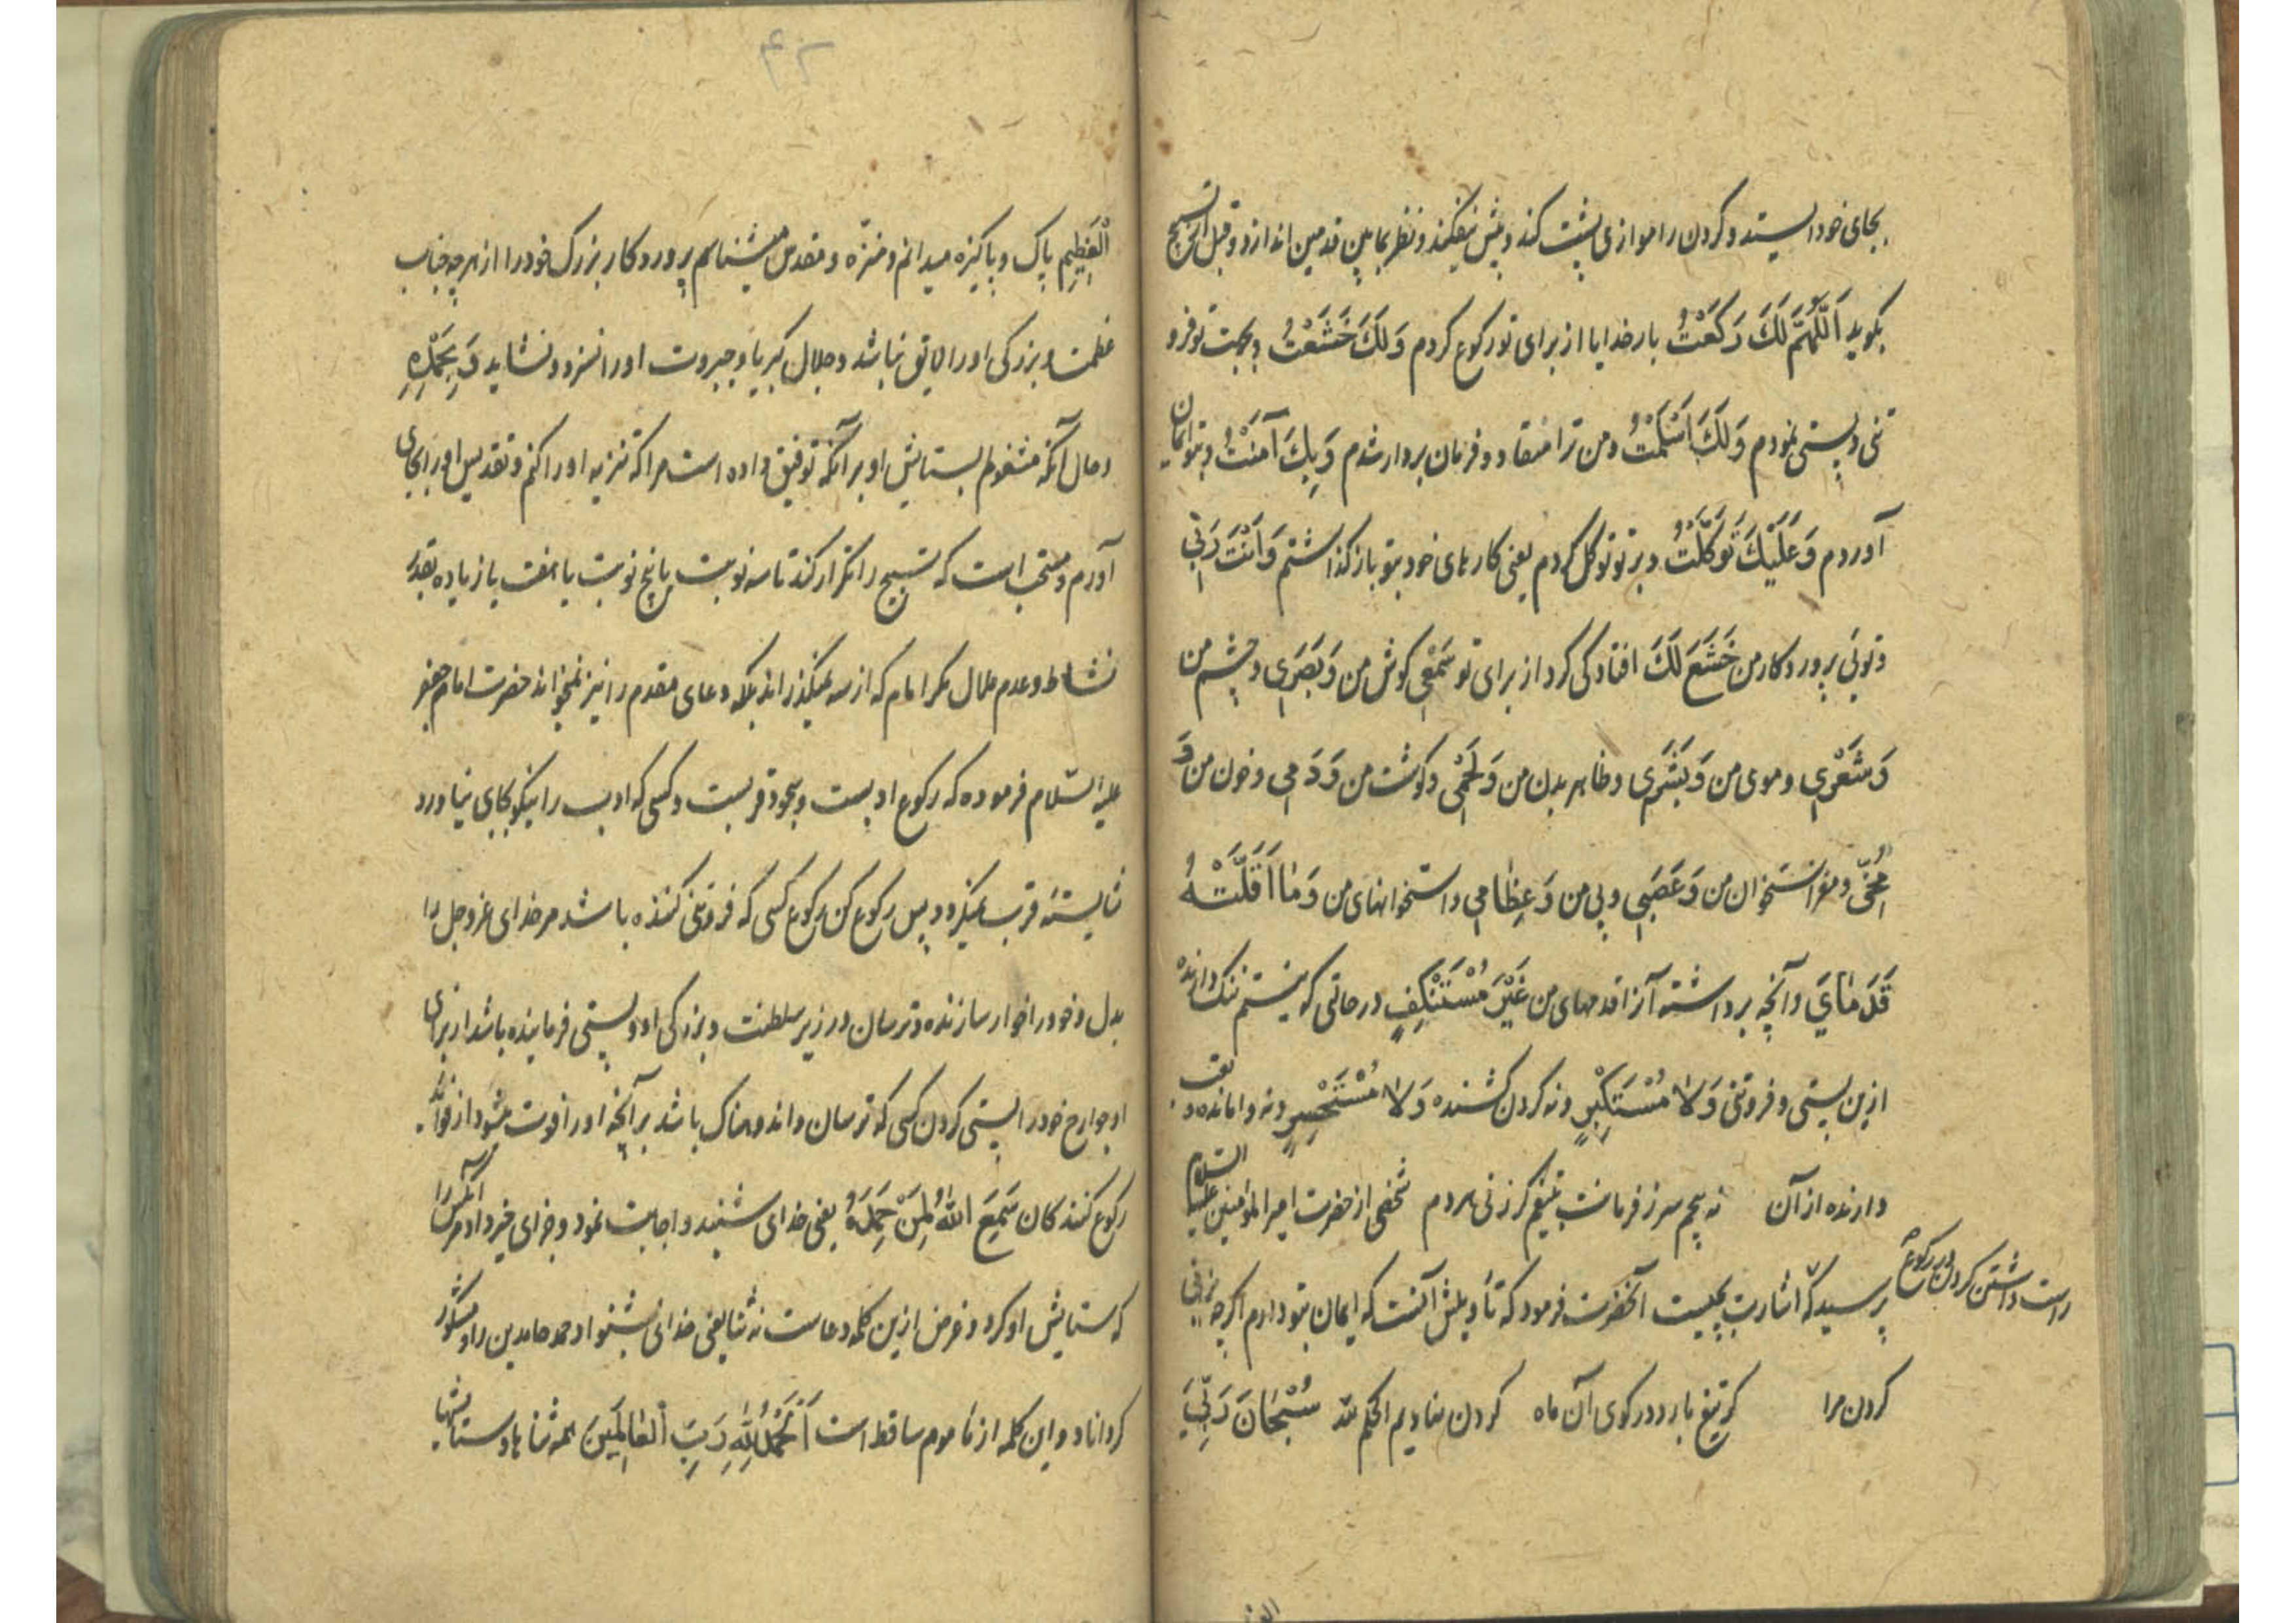 بجای خود ایستد و کردن را موازی پشت کند و پیش نیفکند و نظر بمابین قدمین اندازد و قبل از تسبیح
بکوید اَللّٰهُمَّ لَكَ رَكَعْتُ بار خدایا از برای تو رکوع کردم وَلَكَ خَشَعْتُ و بجهت تو فرو
تنی و پستی نمودم وَلَكَ اَسْلَمْتُ و من ترا منقاد و فرمان بردار شدم وَبِكَ آمَنْتُ و بتو ایمان
آوردم وَعَلَیْكَ تَوَكَّلْتُ و بر تو توکل کردم یعنی کارهای خود بتو باز کذاشتم وَاَنْتَ رَبِّی
و توئی پروردکار من خَشَعَ لَكَ افتادکی کرد از برای تو سَمْعِی کوش من وَبَصَرِی و چشم من
وَشَعْرِی و موی من وَبَشَرِی و ظاهر بدن من وَلَحْمِی و کوشت من وَدَمِی و خون من وَ
مُخِّی و مغز استخوان من وَعَصَبِی و پی من وَعِظٰامِی و استخوانهای من وَمٰا اَقَلَّتْهُ
قَدَمٰایَ و آنچه برداشته آنرا قدمهای من غَیْرَ مُسْتَنْكِفٍ در حالتی که نیستم ننک دارنده
ازین پستی و فروتنی وَلاٰ مُسْتَكْبِرٍ و نه کردن کشنده وَلاٰ مُسْتَحْسِرٍ و نه وامانده و
دارنده از آن نه پیچم سر ز فرمانت بتیغم کر زنی هر دم شخصی از حضرت امیر المؤمنین علیه السلام
راست داشتن کردن در رکوع
پرسید که اشارت بچیست آنحضرت فرمود که تأویلش آنست که ایمان بتو دارم اکرچه بزنی
کردن مرا کر تیغ بارد در کوی آن ماه کردن نهادیم الحکم لله سُبْحَانَ رَبِّیَ
۴۲
الْعَظِیمِ پاک و پاکیزه میدانم و منزّه و مقدس میشناسم پروردکار بزرک خود را از هر چه جناب
عظمت و بزرکی اورا لایق نباشد و جلال کبریا و جبروت اورا نسزد و نشاید وَبِحَمْدِهِ
و حال آنکه مشغولم بستایش او بر آنکه توفیق داده است مرا که تنزیه اورا کنم و تقدیس اورا بجای
آورم و مستحب است که تسبیح را تکرار کند تا سه نوبت یا پنج نوبت یا هفت یا زیاده بقدر
نشاط و عدم ملال مکر امام که از سه نمیکذراند بلکه دعای مقدم را نیز نمیخواند حضرت امام جعفر
علیه السّلام فرموده که رکوع ادبست و سجود قربست و کسی که ادب را نیکو بجای نیاورد
شایستهٔ قرب نمیکردد پس رکوع کن رکوع کسی که فروتنی کننده باشد مر خدای عزوجل را
بدل و خود را خوار سازنده و ترسان در زیر سلطنت و بزرکی او و پستی فرماینده باشد از برای
او جوارح خود را پستی کردن کسی که ترسان و اندوهناک باشد بر آنچه او را فوت میشود از فواید
رکوع کنندکان سَمِعَ اللهُ لِمَنْ حَمِدَهُ یعنی خدای شنید و اجابت نمود و جزای خیر داد مر آنکس را
که ستایش او کرد و غرض ازین کلمه دعاست نه ثنا یعنی خدای بشنواد حمد حامدین را و مشکور
کرداناد و این کلمه از مأموم ساقط است اَلْحَمْدُ لِلّٰهِ رَبِّ الْعٰالَمِینَ همه ثناها و ستایشها